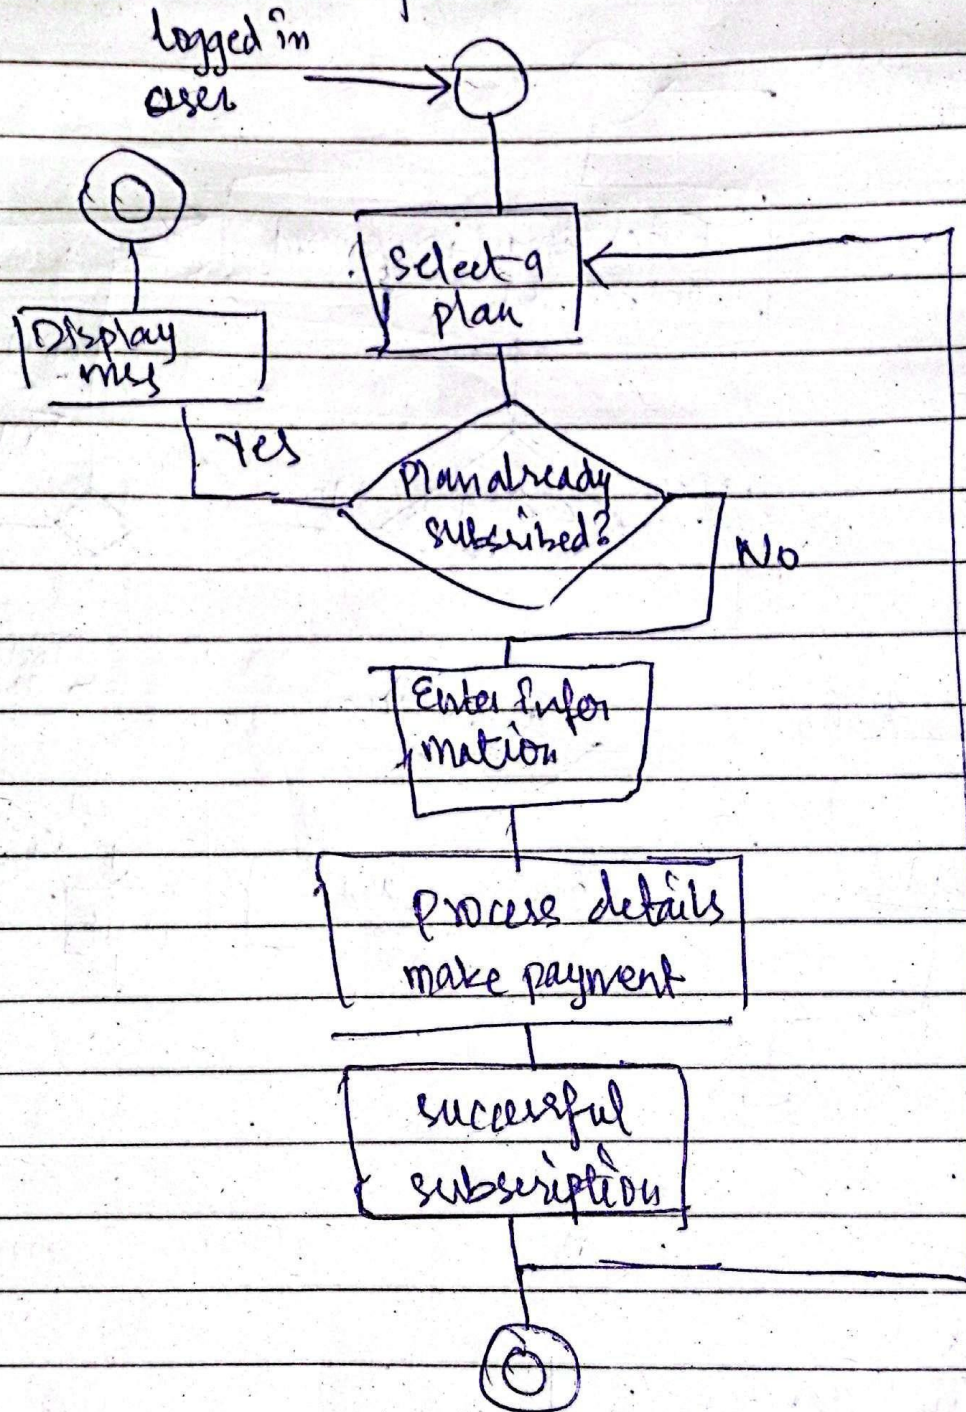 logged in
user
Select a
plan
Display
msg
Yes
Plan already
subscribed?
No
Enter infor
mation
process details
make payment
successful
subscription